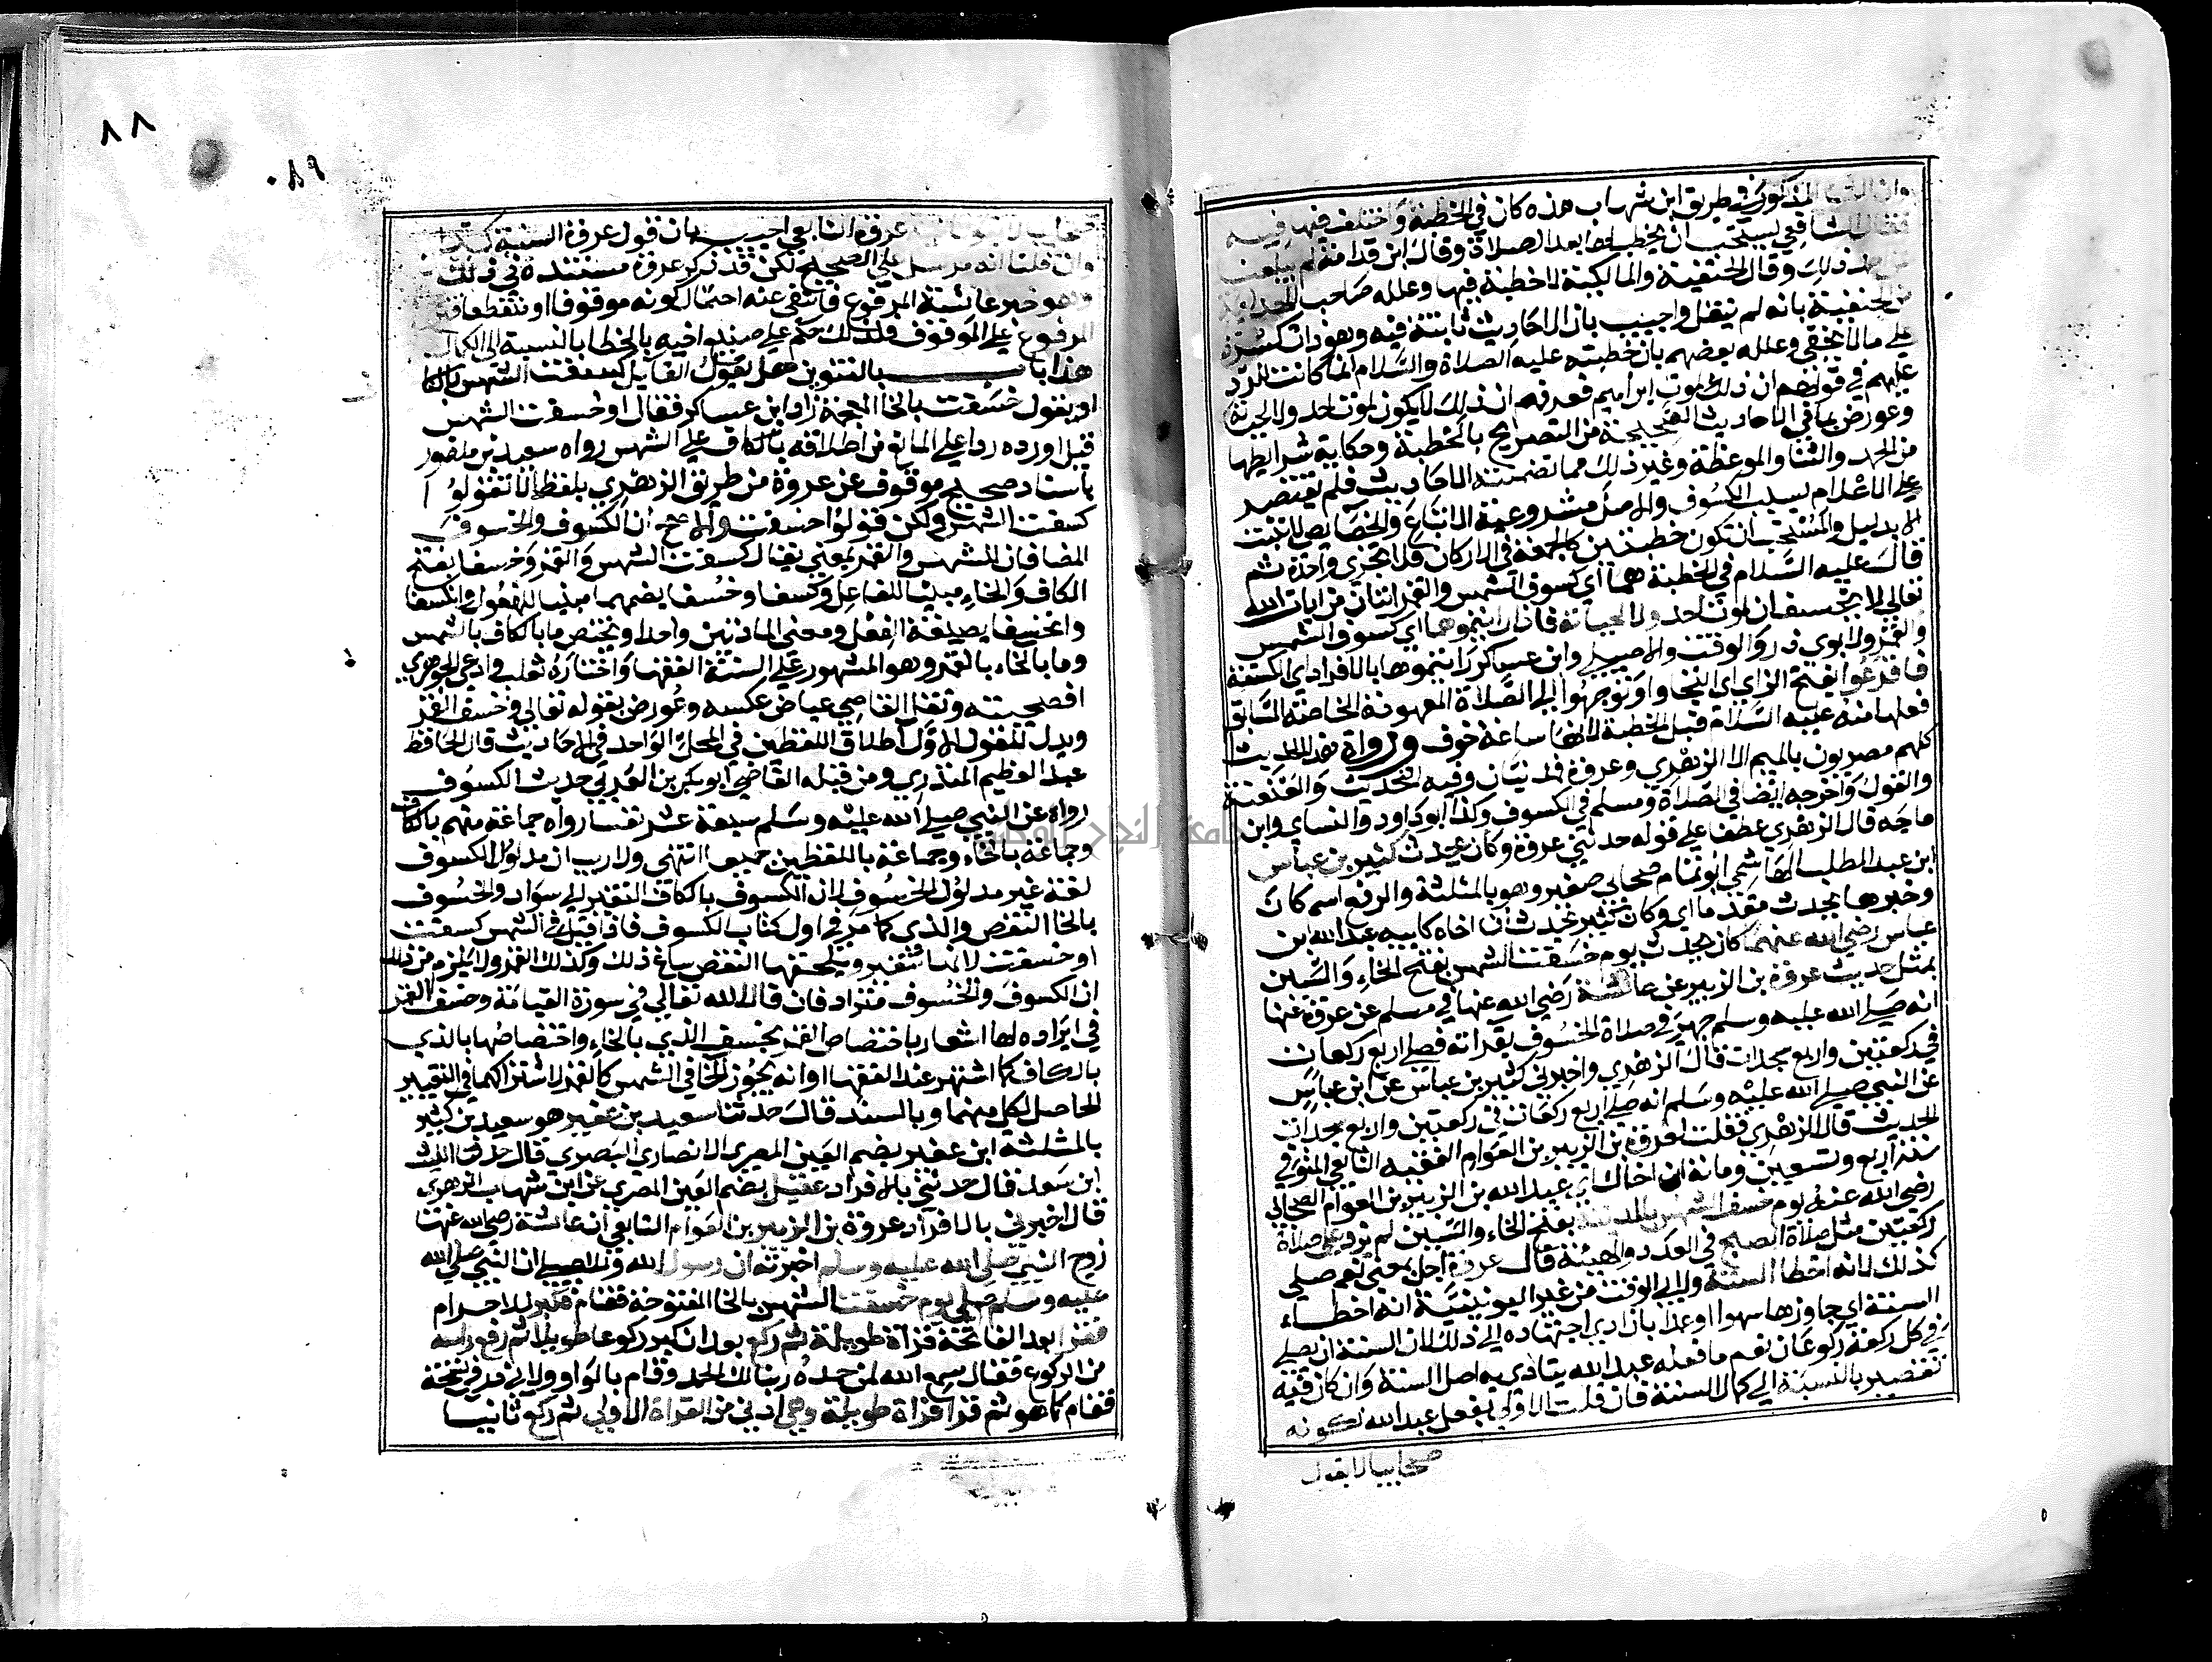 المذكور في طريق ابن شهاب هذه كان في الخطبة واختلف فيها فيه
فقال الشافعي يستحب ان يخطب لها بعد الصلاة وقال ابن قدامة لم يبلغنا
عن احمد ذلك وقال الحنفية والمالكية لا خطبة فيها وعلله صاحب الهداية
من الحنفية بانه لم ينقل واجيب بان الاحاديث ثابتة فيه وهو ذات كثرة
على ما لا يخفى وعلله بعضهم بان خطبته عليه الصلاة والسلام انما كانت للرد
عليهم في قولهم ان ذلك لموت ابراهيم فعرفهم ان ذلك لا يكون لموت احد ولا لحياته
وعورض بما في الاحاديث الصحيحة من التصريح بالخطبة وحكاية شرايطها
من الحمد والثنا والموعظة وغير ذلك مما تضمنته الاحاديث فلم يقتصر
على الاعلام بسبب الكسوف والاصل مشروعية الاتباع والخصايص لا تثبت
الا بدليل والمستحب ان تكون خطبتين كالجمعة في الاركان فلا تجزي واحدة ثم
قال عليه السلام في الخطبة هما اي كسوف الشمس والقمر ايتان من ايات الله
تعالى لا يخسفان لموت احد ولا لحياته فاذا رايتموهما اي كسوف الشمس
والقمر ولابوي ذر والوقت والاصيلي وابن عساكر رايتموها بالافراد اي الكسفة
فافزعوا بفتح الزاي اي التجاوا وتوجهوا الى الصلاة المعهودة الخاصة السابق
فعلها منه عليه السلام قبل الخطبة لانها ساعة خوف ورواة هذا الحديث
كلهم مصريون بالميم الا الزهري وعروة فمدنيان وفيه التحديث والعنعنة
والقول واخرجه ايضا في الصلاة ومسلم في الكسوف وكذا ابو داود والنساي وابن
ماجه قال الزهري عطفا على قوله حدثني عروة وكان يحدث كثير بن عباس
ابن عبد المطلب الهاشمي ابو تمام صحابي صغير وهو بالمثلثة والرفع اسم كان
وخبرها يحدث مقدما اي وكان كثير يحدث ان اخاه لابيه عبد الله ابن
عباس رضي الله عنهما كان يحدث يوم خسفت الشمس بفتح الخاء والسين
بمثل حديث عروة بن الزبير عن عائشة رضي الله عنها في مسلم عن عروة عنها
انه صلى الله عليه وسلم جهر في صلاة الخسوف بقراته فصلى اربع ركعات
في ركعتين واربع سجدات قال الزهري واخبرني كثير بن عباس عن ابن عباس
عن النبي صلى الله عليه وسلم انه صلى اربع ركعات في ركعتين واربع سجدات
الحديث قال الزهري فقلت لعروة بن الزبير بن العوام الفقيه التابعي المتوفى
سنة اربع وتسعين ومائة ان اخاك اي عبد الله بن الزبير بن العوام الصحابي
رضي الله عنه يوم خسفت الشمس بالمدينة بفتح الخاء والسين لم يزد على صلاة
ركعتين مثل صلاة الصبح في العدد والهيئة قال عروة اجل بمعنى نعم صلى
كذلك لانه اخطا السنة ولابي الوقت من غير اليونينية انه اخطاء
السنة اي جاوزها سهوا او عمدا بان ادى اجتهاده الى ذلك لان السنة ان يصلي
في كل ركعة ركوعان نعم ما فعله عبد الله يتادى به اصل السنة وان كان فيه
تقصير بالنسبة الى كمال السنة فان قلت الاولى بفعل عبد الله لكونه
صحابيا لا بقول
صحابيا لا بقول عروة التابعي اجيب بان قول عروة السنة كذا
وان قلنا انه مرسل على الصحيح لكن قد ذكر عروة مستنده في ذلك
وهو خبر عائشة المرفوع فانتفى عنه احتمال كونه موقوفا او منقطعا
المرفوع على الموقوف فلذلك حكم على صنيع اخيه بالخطا بالنسبة الى الكمال
هذا باب بالتنوين هل يقول القايل كسفت الشمس بالكاف
او يقول خسفت بالخا المعجمة زاد ابن عساكر فقال او خسفت الشمس
قيل اورده ردا على المانع من اطلاقه بالكاف على الشمس رواه سعيد بن منصور
باسناد صحيح موقوف عن عروة من طريق الزهري بلفظ لا تقولوا
كسفت الشمس ولكن قولوا خسفت والاصح ان الكسوف والخسوف
المضافان للشمس والقمر بمعنى يقال كسفت الشمس والقمر وخسفا بفتح
الكاف والخاء مبنيا للفاعل وكسفا وخسفا بضمهما مبنيا للمفعول وانكسفا
وانخسفا بصيغة انفعل ومعنى المادتين واحد او يختص ما بالكاف بالشمس
وما بالخاء بالقمر وهو المشهور على السنة الفقها واختاره ثعلب وادعى الجوهري
افصحيته ونقل القاضي عياض عكسه وعورض بقوله تعالى وخسف القمر
ويدل للقول الاول اطلاق اللفظين في المحل الواحد في الاحاديث قال الحافظ
عبد العظيم المنذري ومن قبله القاضي ابو بكر بن العربي حديث الكسوف
رواه عن النبي صلى الله عليه وسلم سبعة عشر نفسا رواه جماعة منهم بالكاف
وجماعة بالخاء وجماعة باللفظين جميعا انتهى ولا ريب ان مدلول الكسوف
لغة غير مدلول الخسوف لان الكسوف بالكاف التغير الى سواد والخسوف
بالخا النقص والذي كما مر في اول كتاب الكسوف فاذا قيل في الشمس كسفت
او خسفت لانها تتغير ويلحقها النقص ساغ ذلك وكذلك القمر ولا يلزم من ذلك
ان الكسوف والخسوف مترادفان قال الله تعالى في سورة القيامة وخسف القمر
في ايراده لها اشعار باختصاص القمر بخسف الذي بالخاء واختصاصها بالذي
بالكاف كما اشتهر عند الفقها او انه يجوز الخا في الشمس كالقمر لاشتراكهما في التغيير
الحاصل لكل منهما وبالسند قال حدثنا سعيد بن عفير هو سعيد بن كثير
بالمثلثة ابن عفير بضم العين المصري الانصاري البصري قال حدثنا الليث
ابن سعد قال حدثني بالافراد عقيل بضم العين المصري عن ابن شهاب الزهري
قال اخبرني بالافراد عروة بن الزبير بن العوام التابعي ان عائشة رضي الله عنها
زوج النبي صلى الله عليه وسلم اخبرته ان رسول الله وللاصيلي ان النبي صلى الله
عليه وسلم صلى يوم خسفت الشمس بالخا المفتوحة فقام فكبر للاحرام
فقرا بعد الفاتحة قراة طويلة ثم ركع بعد ان كبر ركوعا طويلا ثم رفع راسه
من الركوع فقال سمع الله لمن حمده ربنا لك الحمد وقام بالواو ولابي ذر في نسخة
فقام كما هو ثم قرا قراة طويلة وهي ادنى من القراة الاولى ثم ركع ثانيا
٨٨
٨٩
جامعة النجاح الوطنية